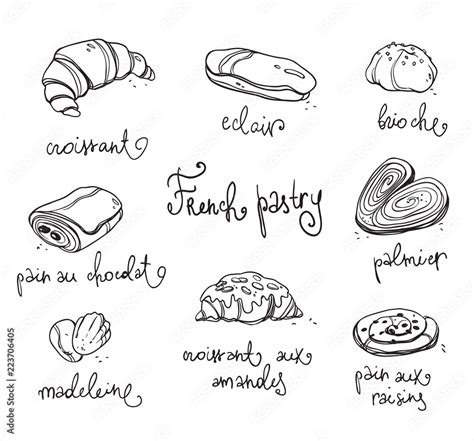 croissant
eclair
brioche
French pastry
pain au chocolat
palmier
madeleine
croissant aux
amandes
pain aux
raisins
Adobe Stock | #223706405